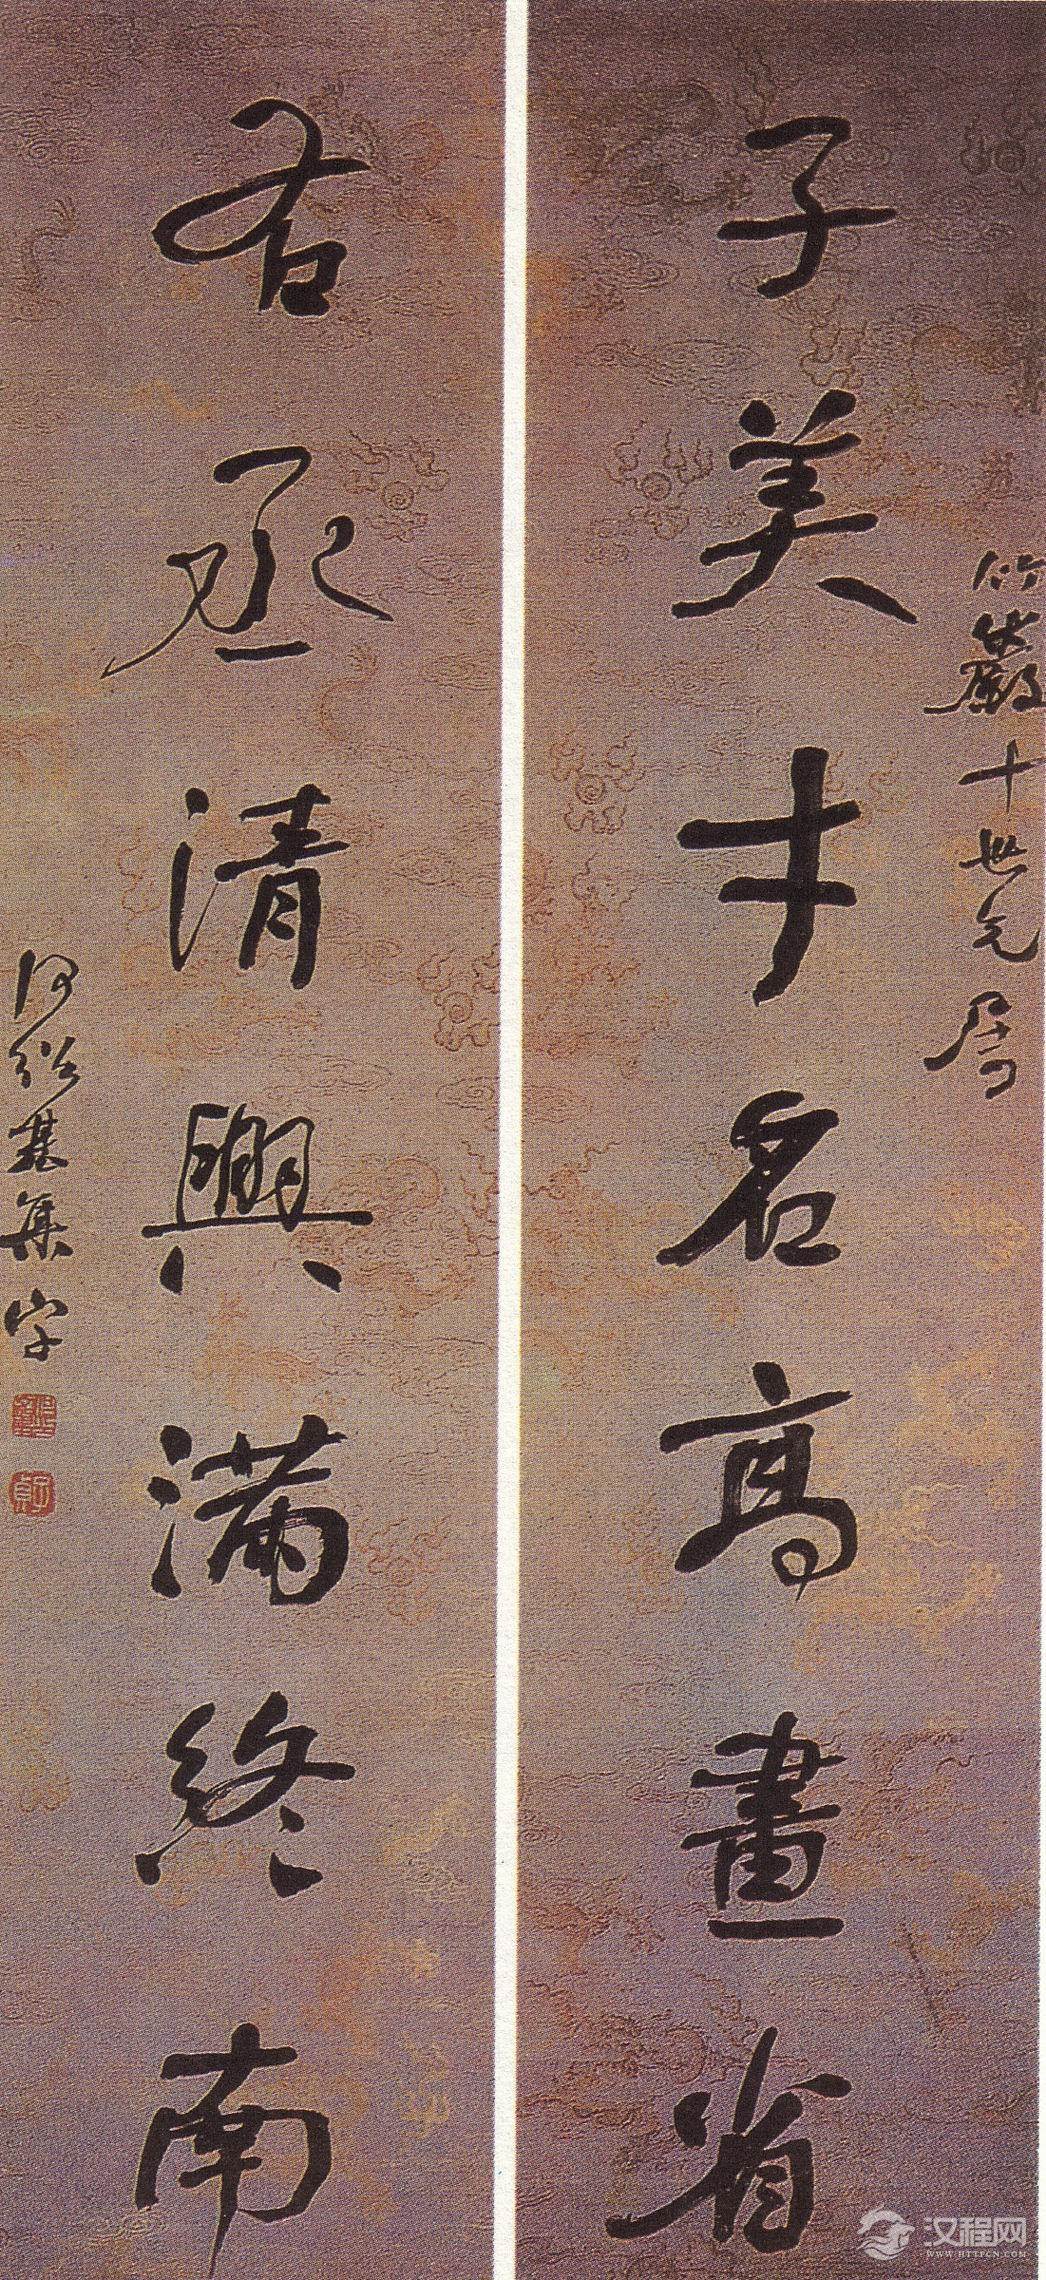 竹巖十世兄屬
子美才名高畫省
右丞清興滿終南
何紹基集字
汉程网
WWW.HTTPCN.COM